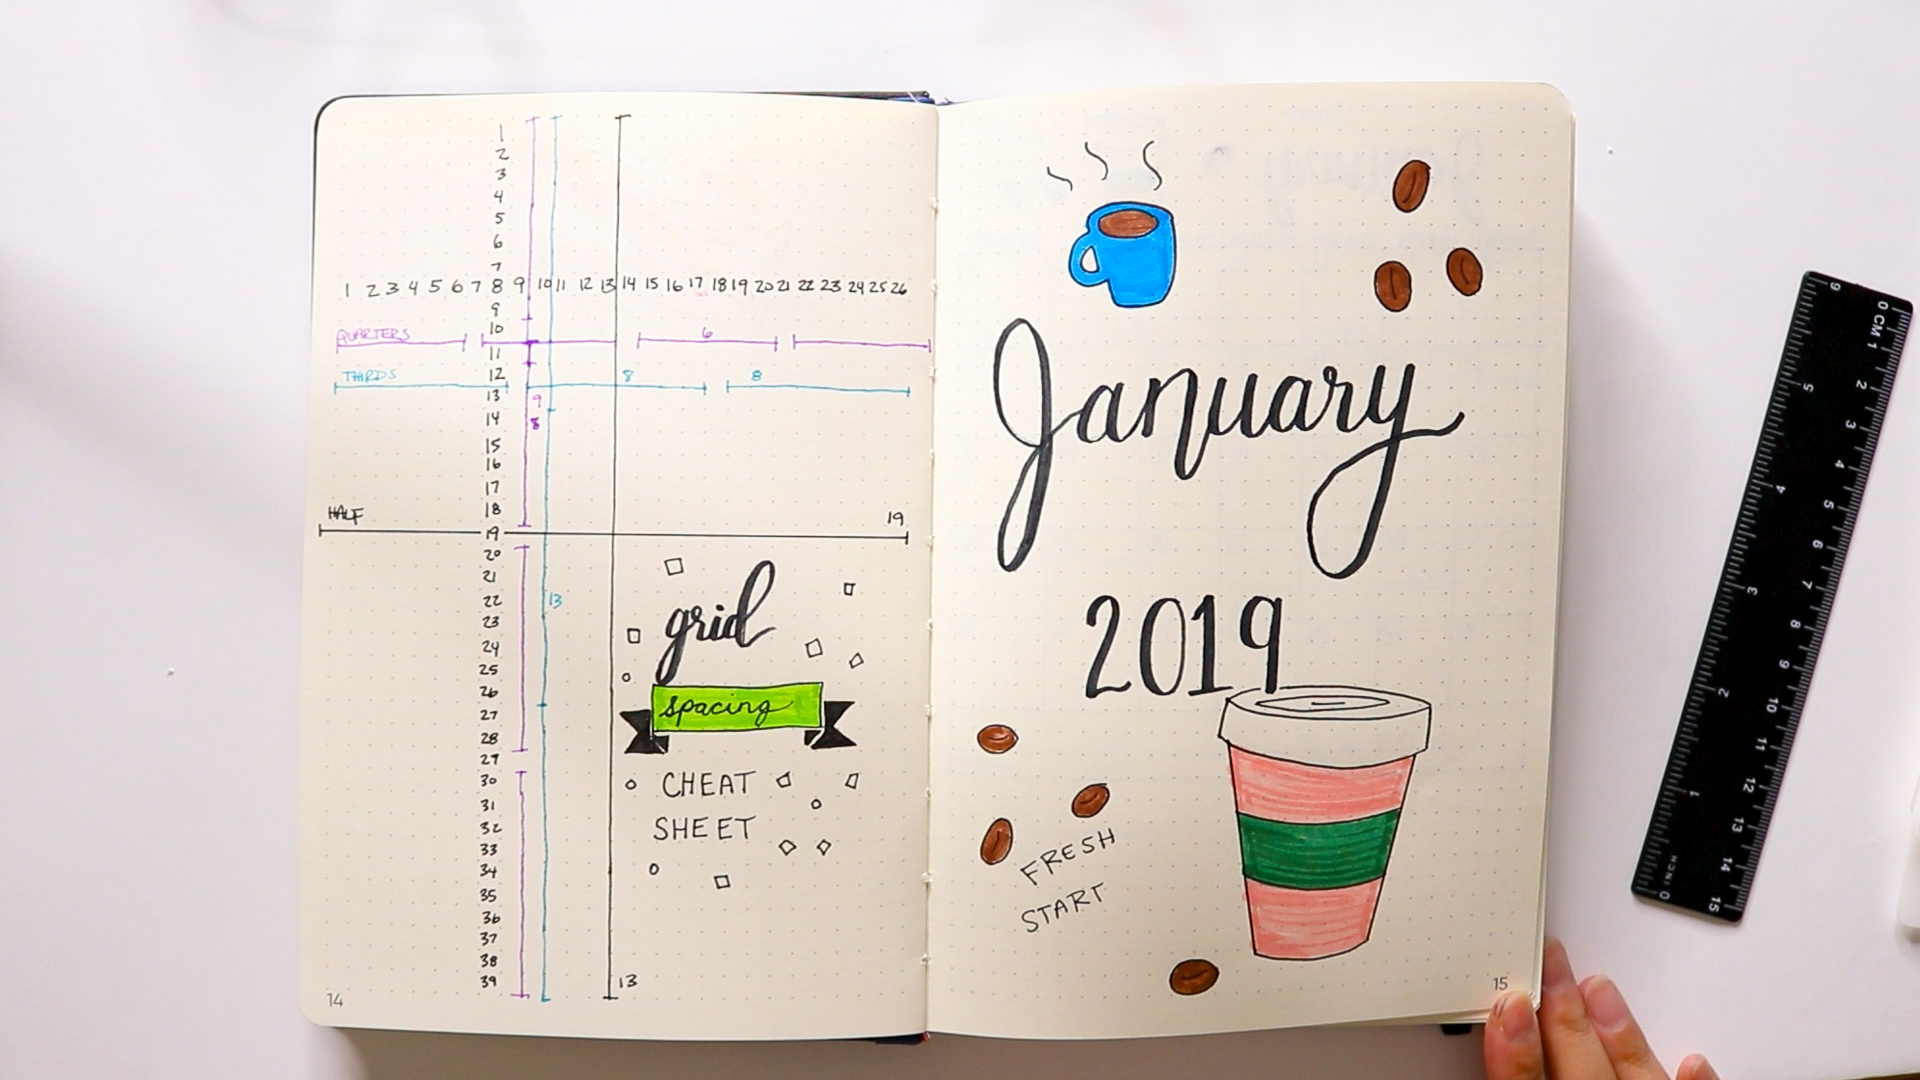 1
2
3
4
5
6
7
1 2 3 4 5 6 7 8 9 10 11 12 13 14 15 16 17 18 19 20 21 22 23 24 25 26
9
QUARTERS 10 6
11
THIRDS 12 8 8
13 9
14 8
15
16
17
HALF 18 19
19
20
21
22 13
23
24
25
26
27
28
29
30
31
32
33
34
35
36
37
38
39 13
grid
spacing
CHEAT
SHEET
14
January
2019
FRESH
START
15
0 CM 1 2 3 4 5 6 7 8 9 10 11 12 13 14 15
6 5 4 3 2 1 0 INCH